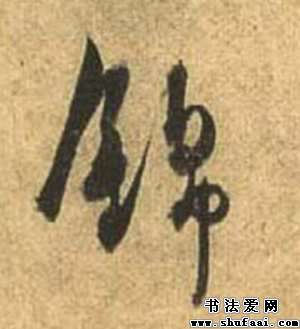 錦
书法爱网
www.shufaai.com